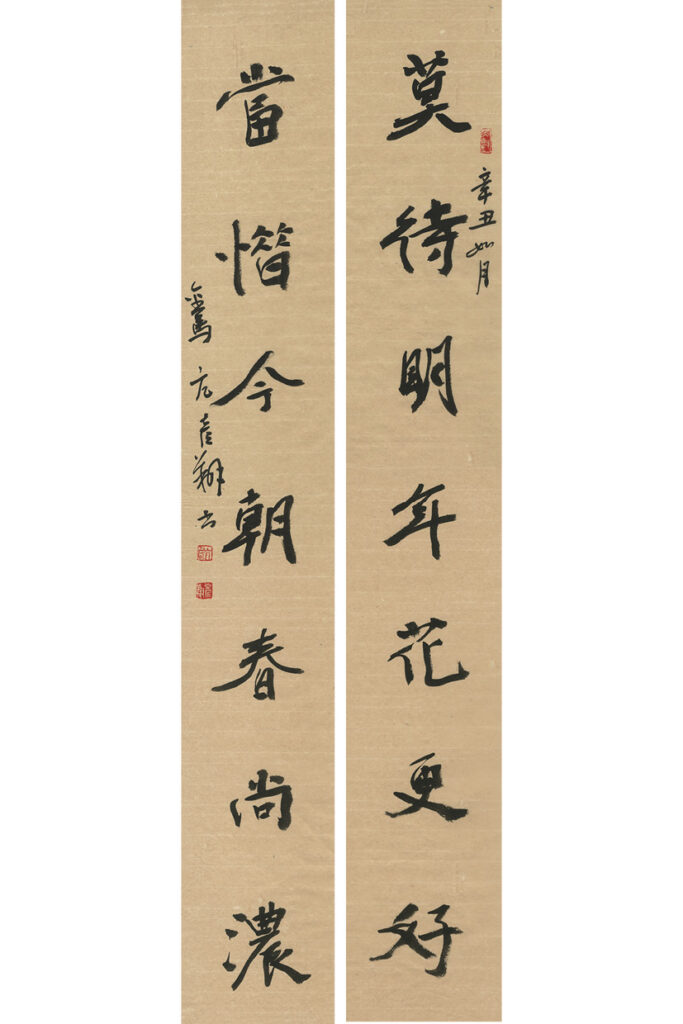 莫待明年花更好
辛丑如月
當惜今朝春尚濃
彦翔书